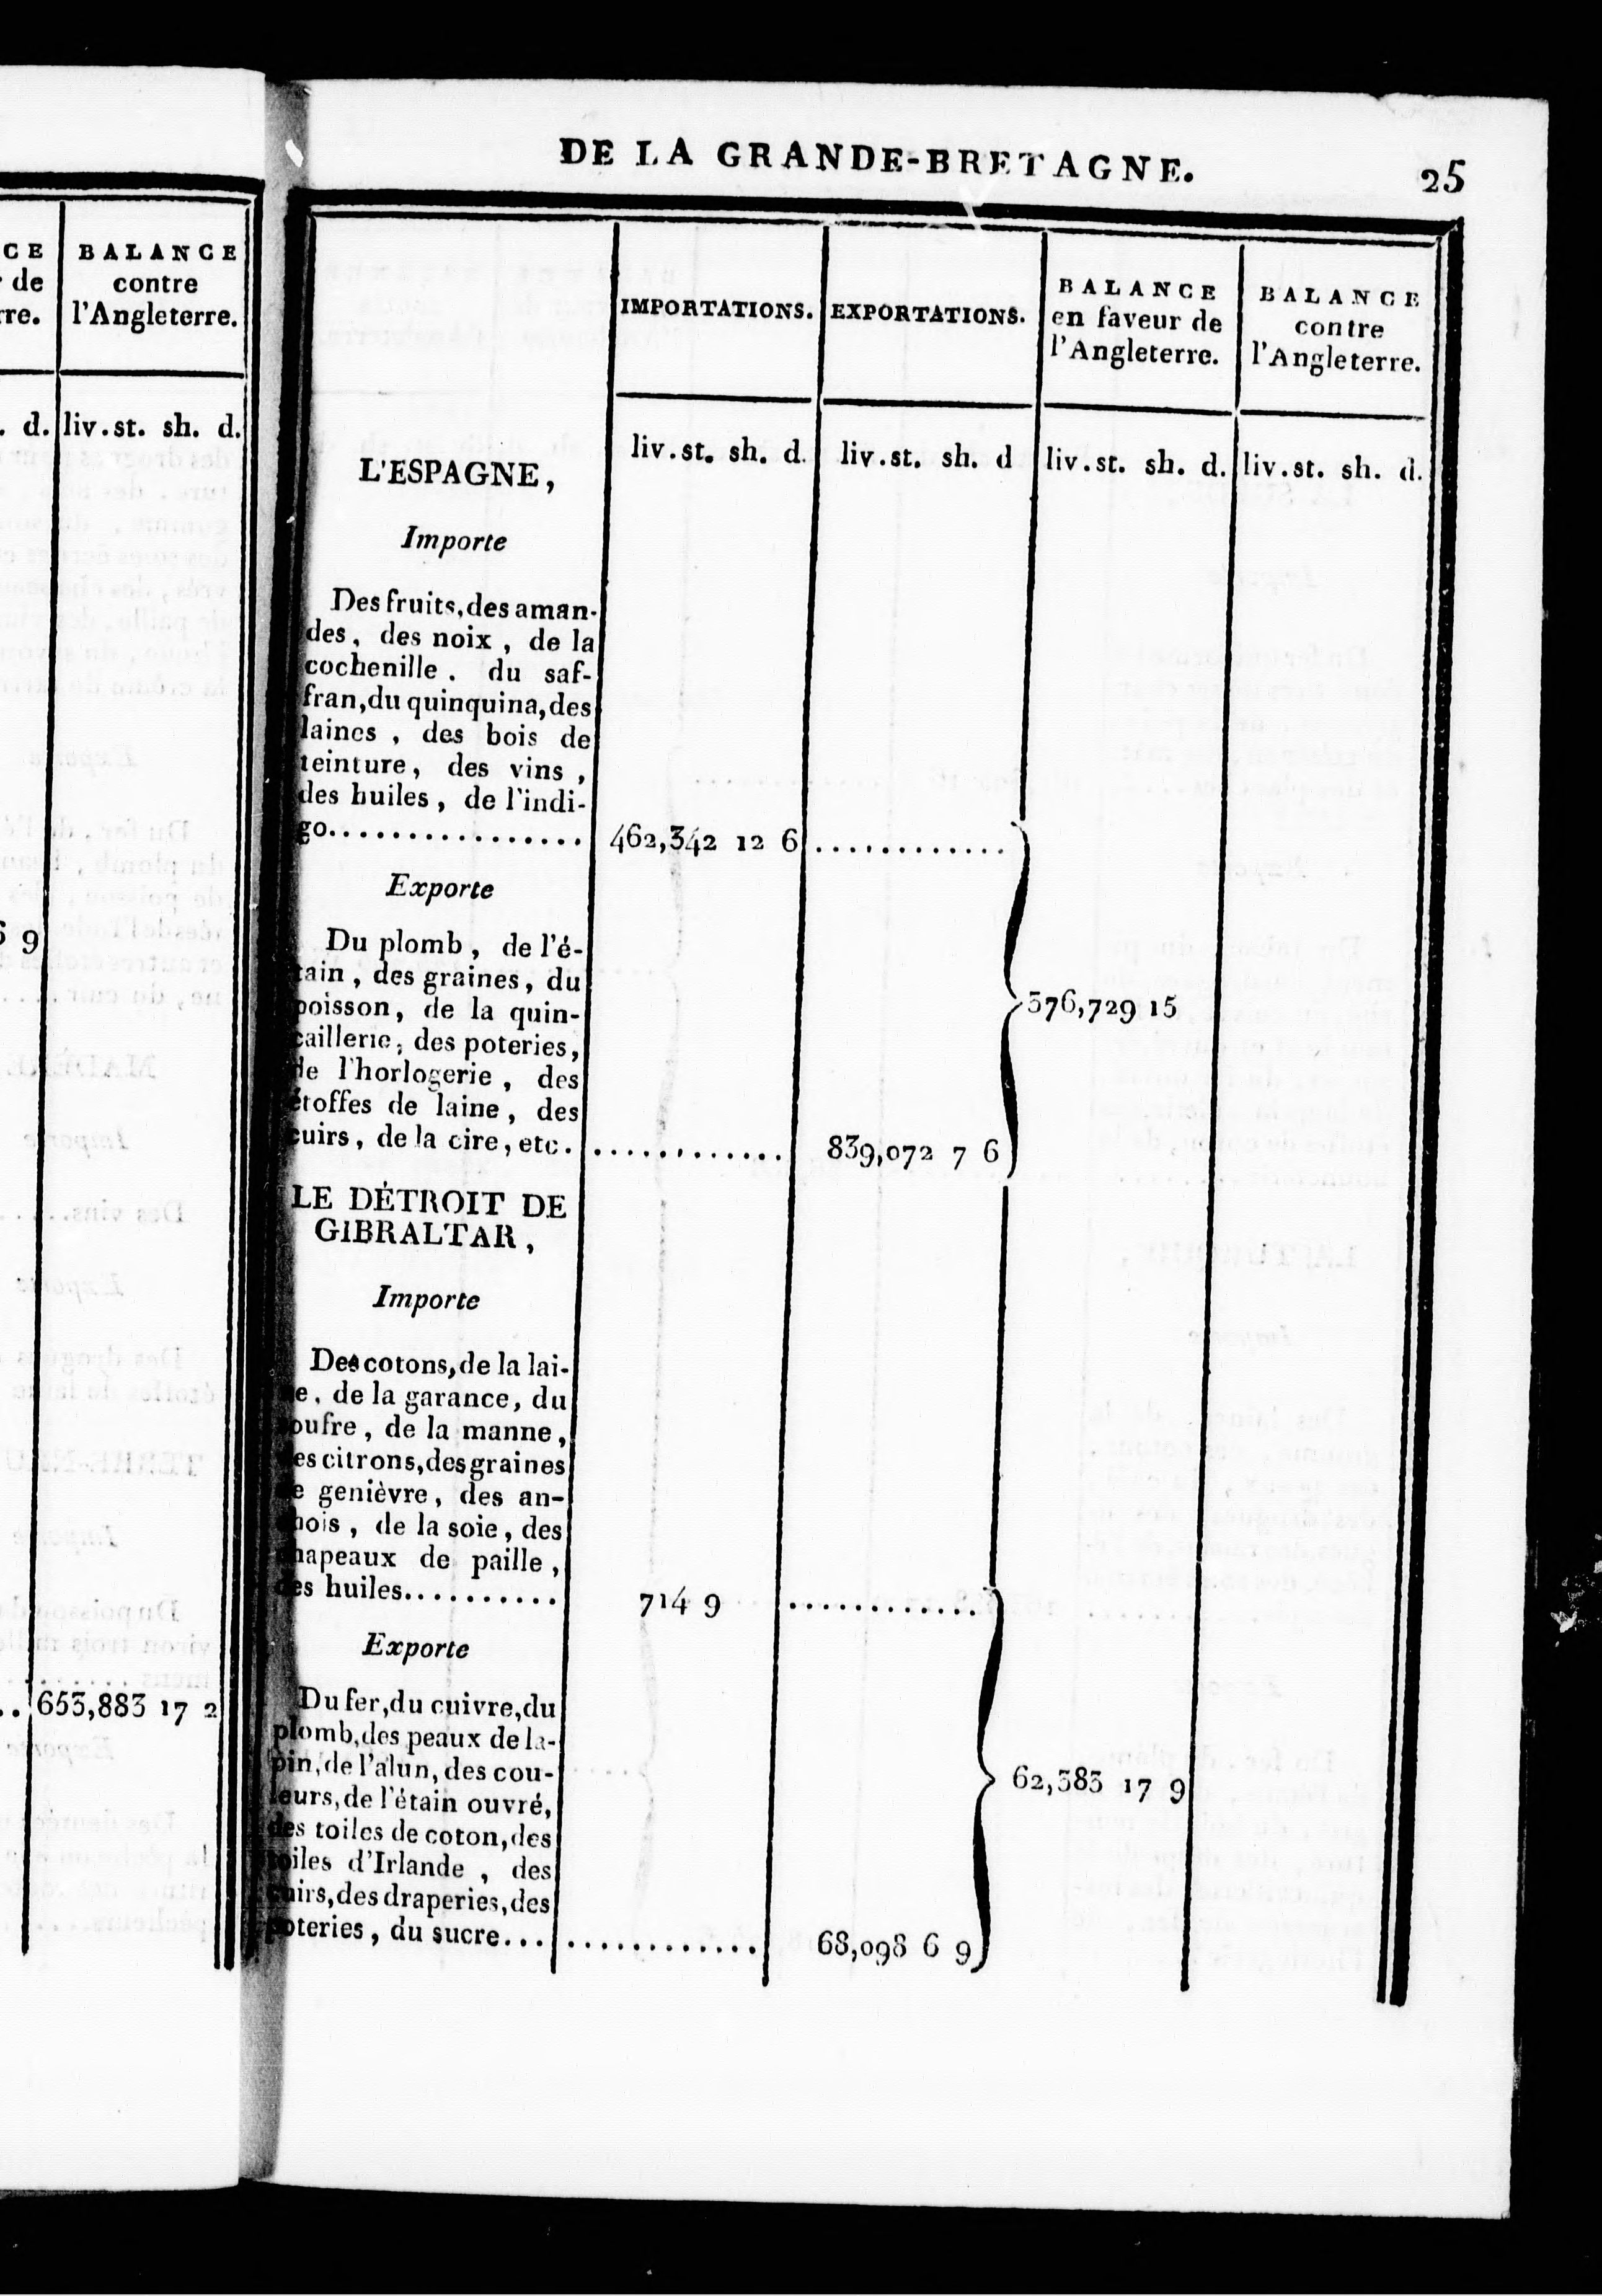 CE
BALANCE
r de
contre
rre.
l'Angleterre.
. d.
liv.st. sh. d.
6 9
..
653,883 17 2
DE LA GRANDE-BRETAGNE.
25
IMPORTATIONS.
EXPORTATIONS.
BALANCE
en faveur de
l'Angleterre.
BALANCE
contre
l'Angleterre.
liv.st. sh. d.
liv.st. sh. d
liv.st. sh. d.
liv.st. sh. d.
L'ESPAGNE,
Importe
Des fruits, des aman-
des, des noix, de la
cochenille. du saf-
fran, du quinquina, des
laines, des bois de
teinture, des vins,
des huiles, de l'indi-
go................ 462,342 12 6 .............
Exporte
Du plomb, de l'é-
tain, des graines, du
poisson, de la quin-
576,729 15
caillerie, des poteries,
de l'horlogerie, des
étoffes de laine, des
cuirs, de la cire, etc. ............. 839,072 7 6
LE DÉTROIT DE
GIBRALTAR,
Importe
Des cotons, de la lai-
ne, de la garance, du
soufre, de la manne,
des citrons, des graines
de genièvre, des an-
chois, de la soie, des
chapeaux de paille,
des huiles.......... 714 9 .............
Exporte
Du fer, du cuivre, du
plomb, des peaux de la-
pin, de l'alun, des cou-
62,383 17 9
leurs, de l'étain ouvré,
des toiles de coton, des
toiles d'Irlande, des
cuirs, des draperies, des
poteries, du sucre... ............. 68,098 6 9